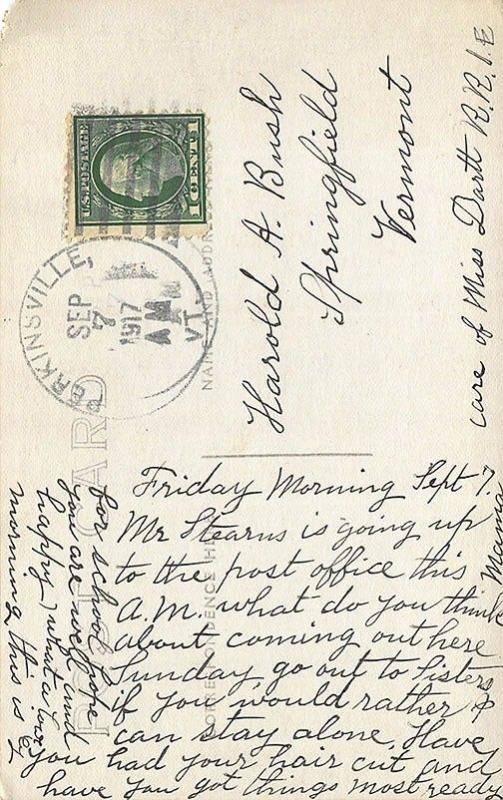 POST CARD
CORRESPONDENCE
NAME AND ADDRESS
U.S. POSTAGE
1 CENT 1
PERKINSVILLE,
SEP
7
1917
AM
VT
Harold A. Bush
Springfield
Vermont
care of Miss Dartt R.R. 1.E
Friday Morning Sept 7.
Mr Stearns is going up
to the post office this
A.M. what do you think
about coming out here
Sunday go out to Sisters
if you would rather
can stay alone, Have
you had your hair cut and
have you got things most ready
for school hope
you are well and
happy, what a
morning this is